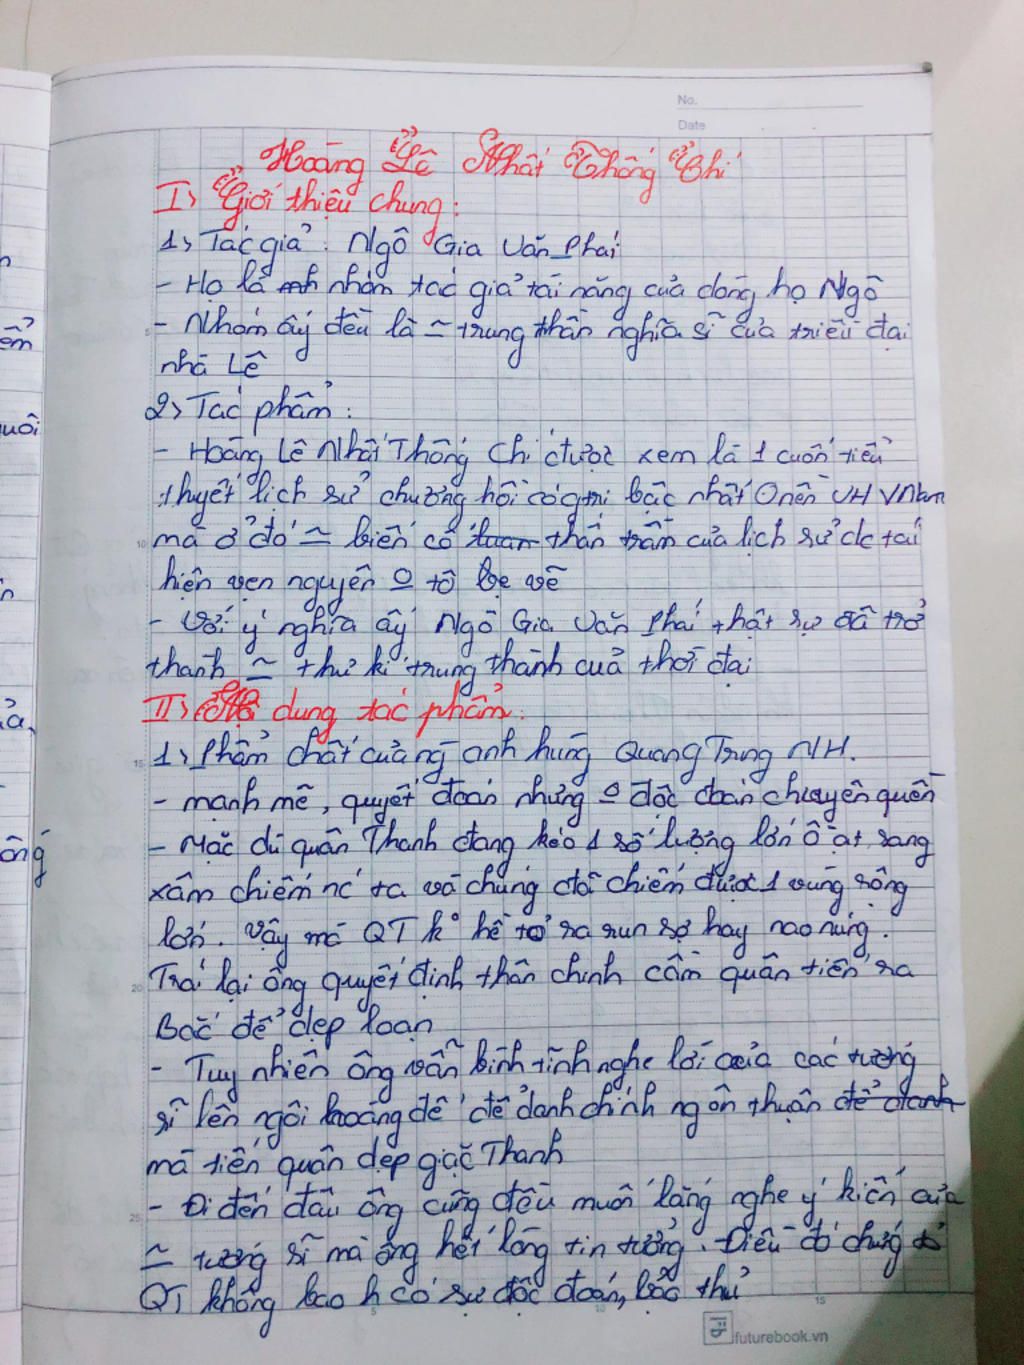 No.
Date
Hoàng Lê Nhất Thống Chí
I> Giới thiệu chung:
1> Tác giả: Ngô Gia Văn Phái
- Họ là nhóm tác giả tài năng của dòng họ Ngô
- Nhóm ấy đều là ~ trung thần nghĩa sĩ của triều đại
nhà Lê
2> Tác phẩm:
- Hoàng Lê Nhất Thống Chí được xem là 1 cuốn tiểu
thuyết lịch sử chương hồi có gtrị bậc nhất nền VH VNam
mà ở đó ~ biến cố thăng trầm của lịch sử đc tái
hiện vẹn nguyên o tô vẽ
- Với ý nghĩa ấy Ngô Gia Văn Phái thật sự đã trở
thành ~ thư kí trung thành của thời đại
II> Nội dung tác phẩm:
1> Phẩm chất của ng anh hùng Quang Trung NH.
- mạnh mẽ, quyết đoán nhưng o độc đoán chuyên quyền
- Mặc dù quân Thanh đang kéo 1 số lượng lớn ồ ạt sang
xâm chiếm nc ta và chúng đã chiếm được 1 vùng rộng
lớn. Vậy mà QT k° hề tỏ ra run sợ hay nao núng.
Trái lại ông quyết định thân chinh cầm quân tiến ra
Bắc để dẹp loạn
- Tuy nhiên ông vẫn bình tĩnh nghe lời của các tướng
sĩ lên ngôi hoàng đế để danh chính ngôn thuận để danh
mà tiến quân dẹp giặc Thanh
- Đi đến đâu ông cũng đều muốn lắng nghe ý kiến của
~ tướng sĩ mà ông hết lòng tin tưởng. Điều đó chứng tỏ
QT không bao h có sự độc đoán, bảo thủ
5
10
15
20
25
5
10
15
futurebook.vn
ểm
uôi
ả,
ông